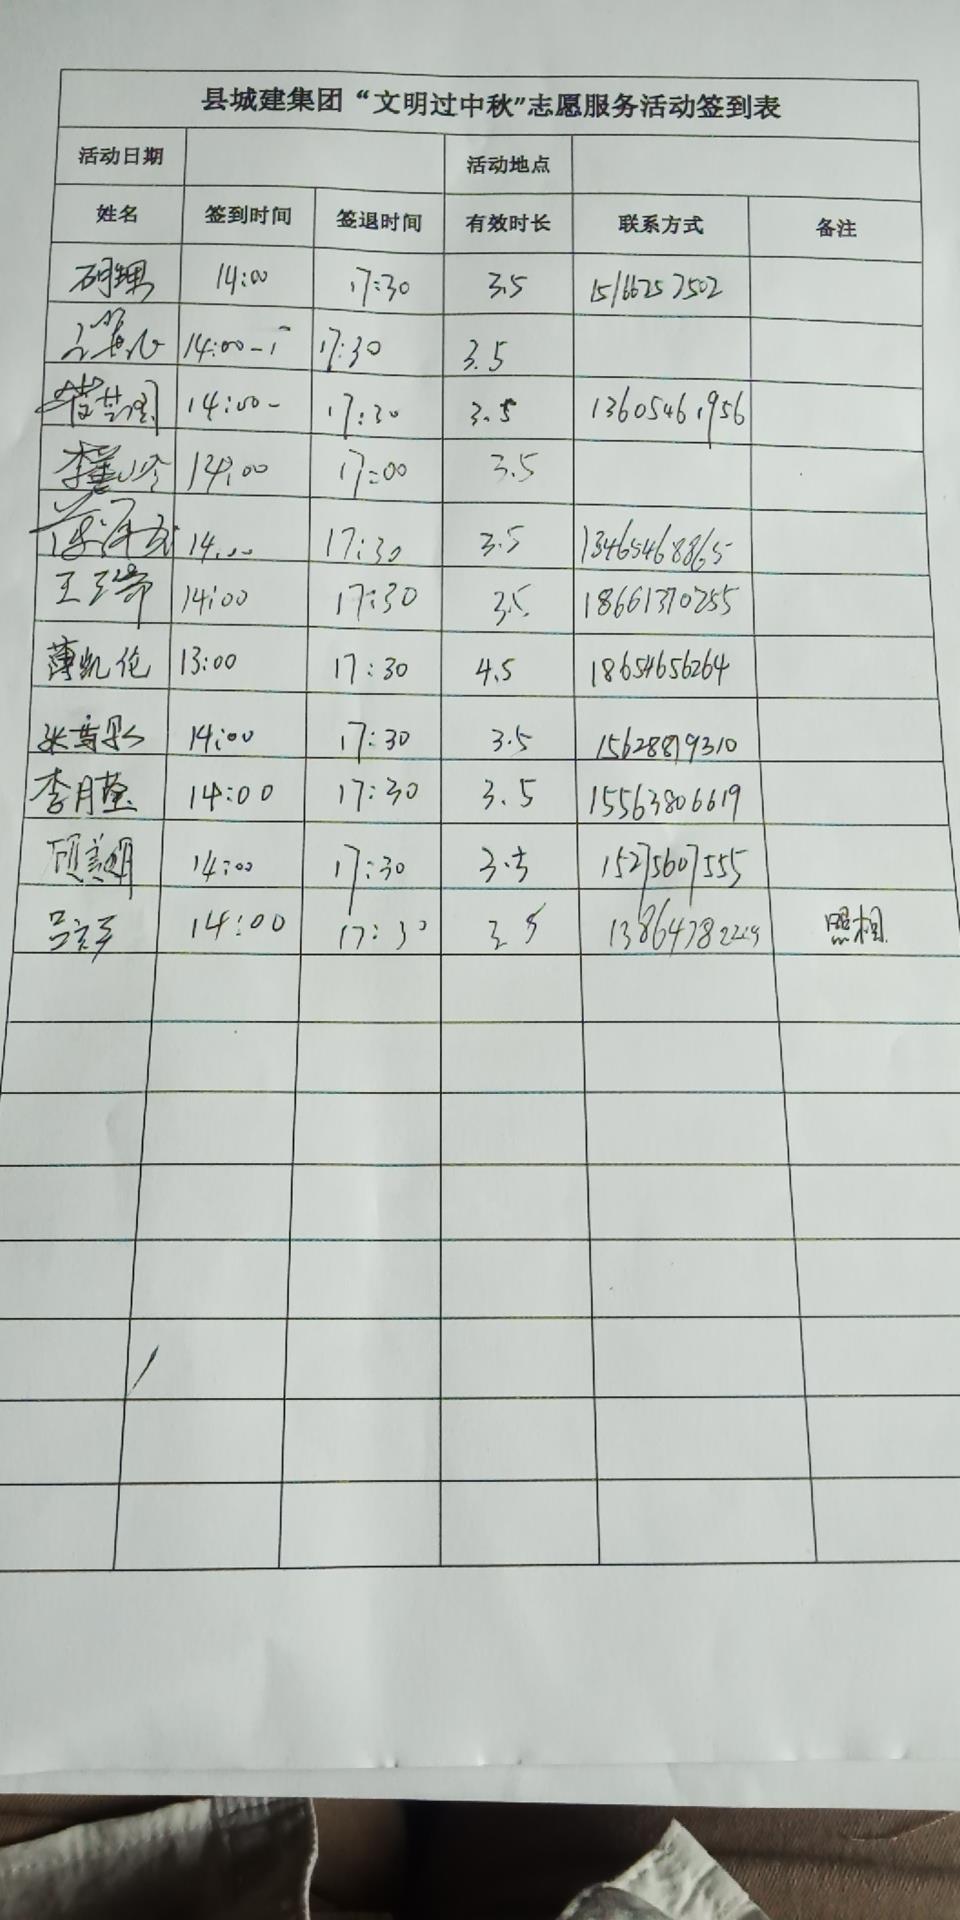 县城建集团“文明过中秋”志愿服务活动签到表
活动日期 活动地点
姓名 签到时间 签退时间 有效时长 联系方式 备注
14:00 17:30 3.5 15166257502
14:00- 17:30 3.5
14:00- 17:30 3.5 13605461956
14:00 17:00 3.5
14:00 17:30 3.5 13465468865
14:00 17:30 3.5 18661370255
薄凯伦 13:00 17:30 4.5 18654656264
14:00 17:30 3.5 15628819310
李月莹 14:00 17:30 3.5 15563806619
14:00 17:30 3.5 15275607555
14:00 17:30 3.5 照相